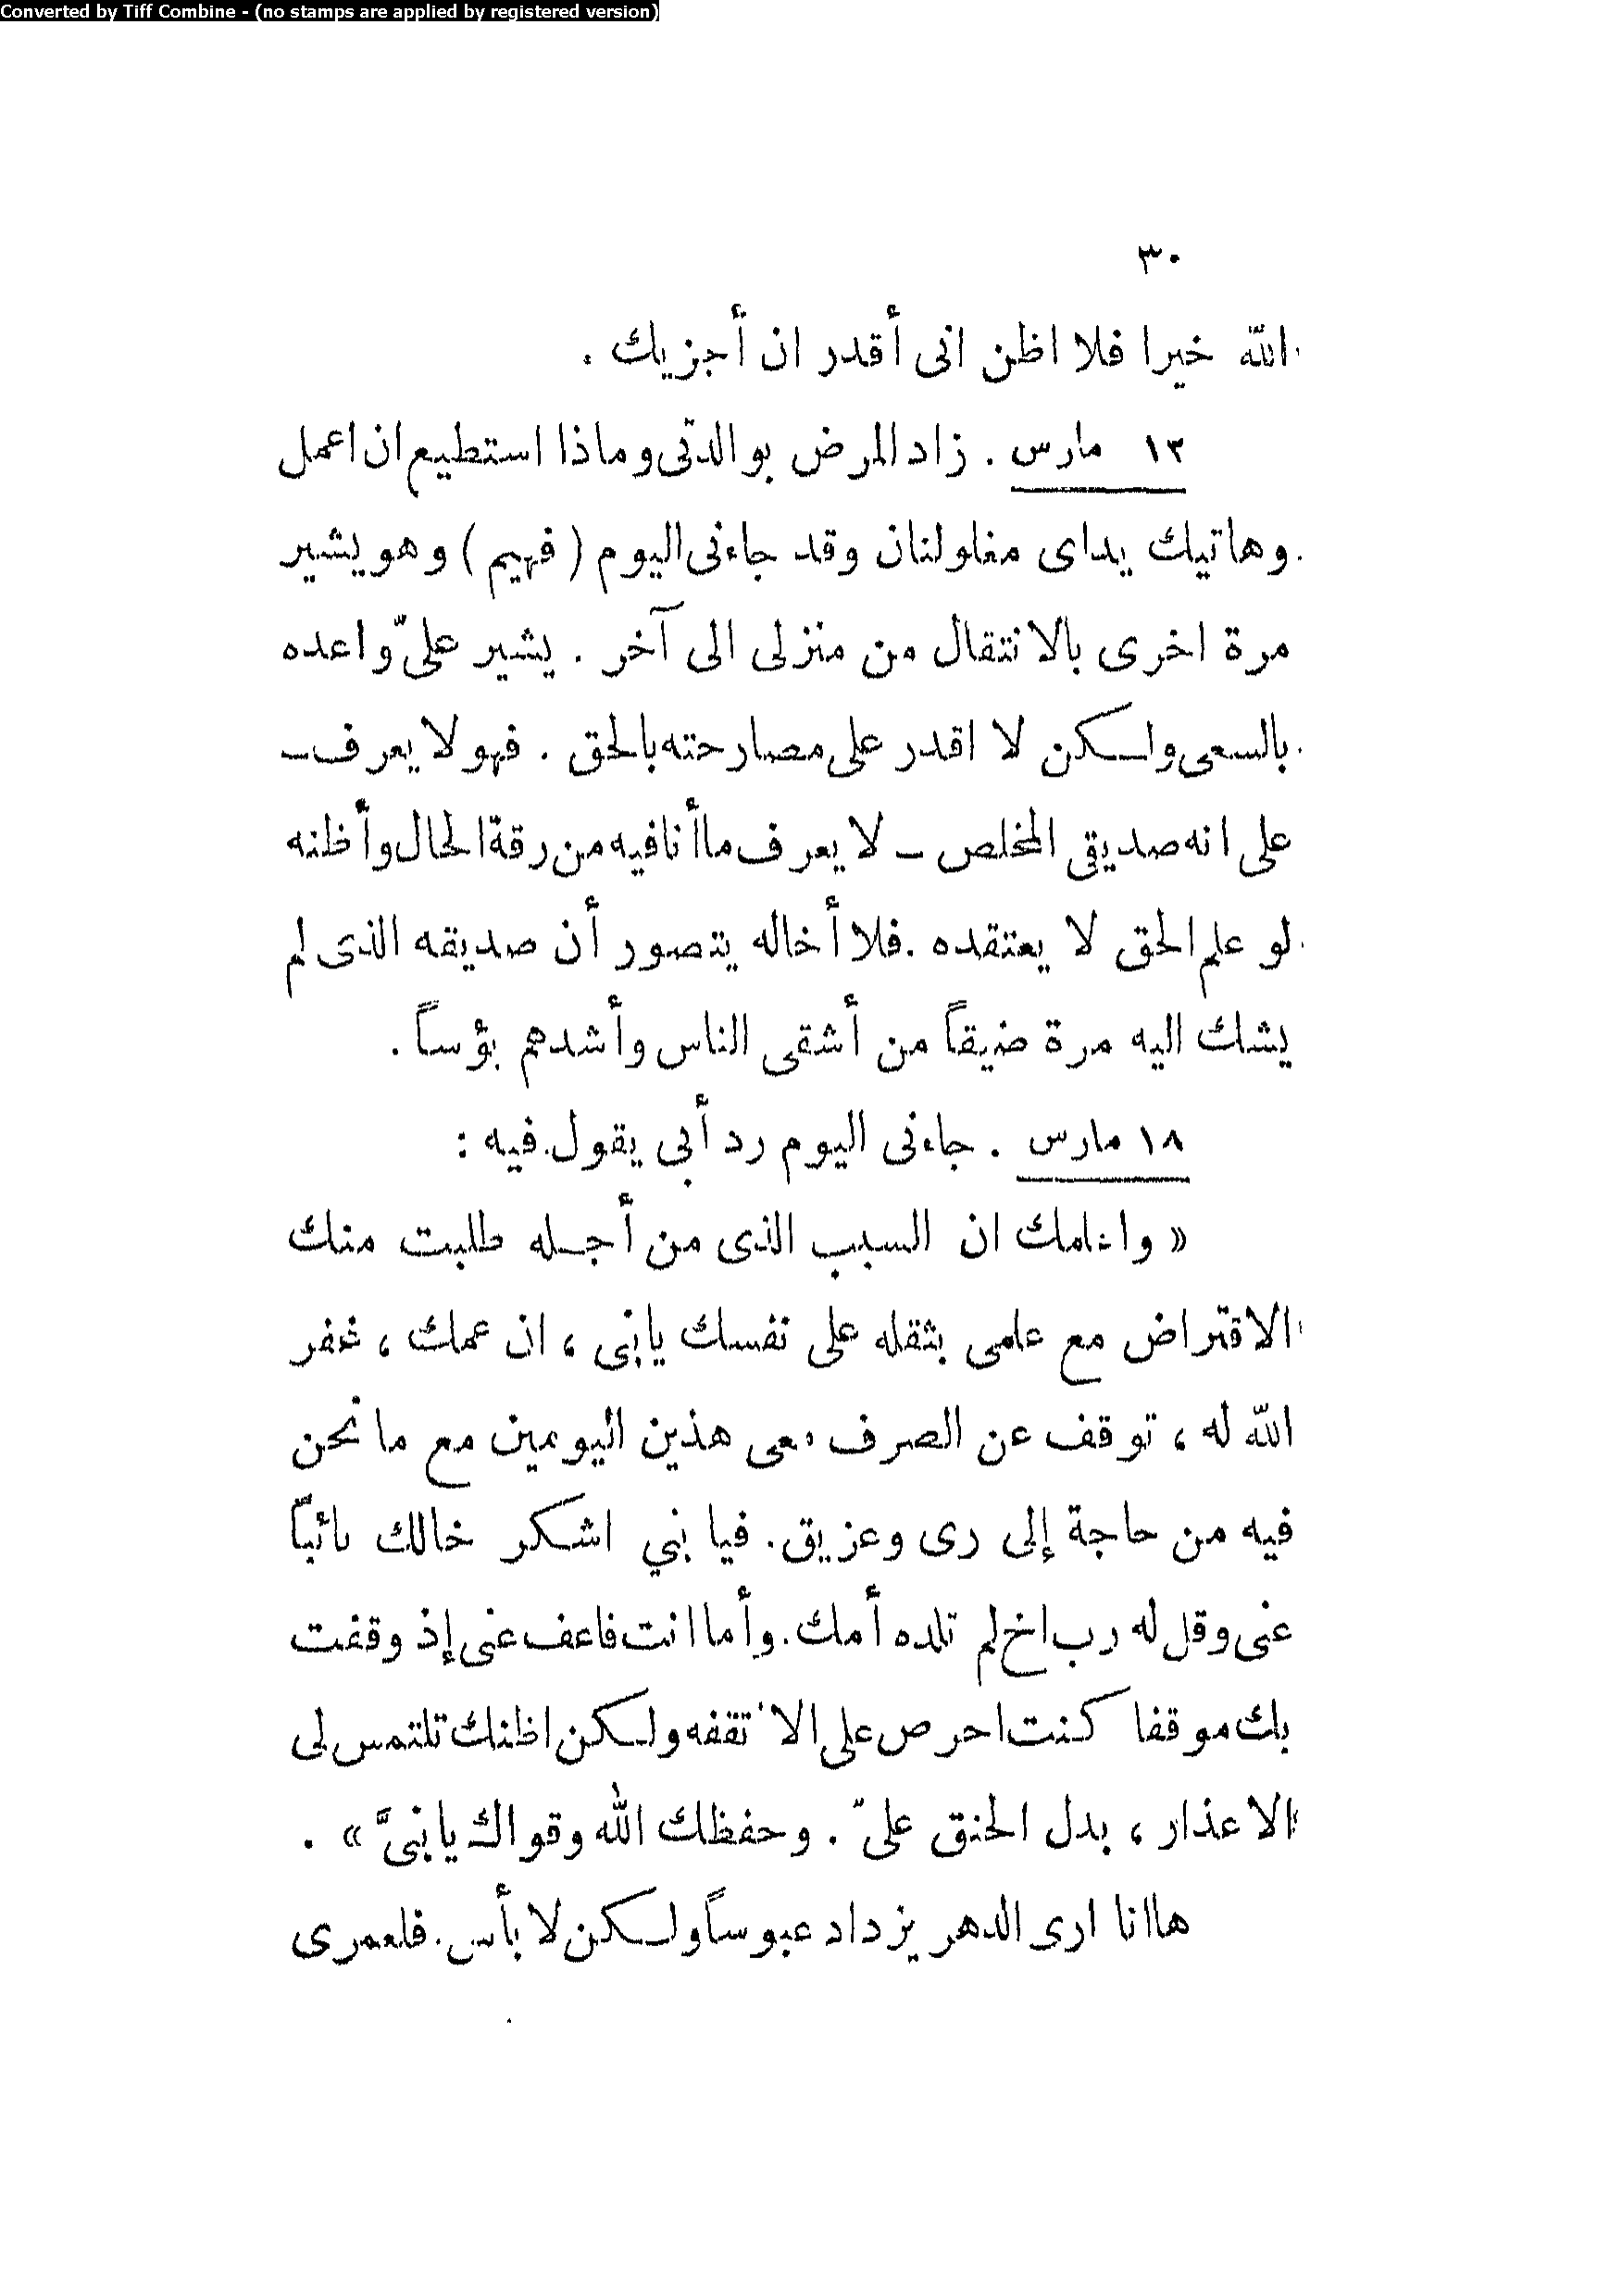 Converted by Tiff Combine - (no stamps are applied by registered version)
٣٠
الله خيرا فلا اظن انى أقدر ان أجزيك .
١٣ مارس . زاد المرض بوالدتى وماذا استطيع ان اعمل
وهاتيك يداى مغلولتان وقد جاءنى اليوم ( فهيم ) وهو يشير
مرة اخرى بالانتقال من منزلى الى آخر . يشير علىّ واعده
بالسعى ولكن لا اقدر على مصارحته بالحق . فهو لا يعرف –
على انه صديقى المخلص – لا يعرف ما أنا فيه من رقة الحال وأظنه
لو علم الحق لا يعتقده . فلا أخاله يتصور أن صديقه الذى لم
يشك اليه مرة ضيقاً من أشقى الناس وأشدهم بؤساً .
١٨ مارس . جاءنى اليوم رد أبى يقول فيه :
« واعلمك ان السبب الذى من أجله طلبت منك
الاقتراض مع علمى بثقله على نفسك يابنى ، ان عمك ، غفر
الله له ، توقف عن الصرف معى هذين اليومين مع ما نحن
فيه من حاجة إلى رى وعزيق . فيا بني اشكر خالك نائباً
عنى وقل له رب اخ لم تلده أمك . وأما انت فاعف عنى إذ وقفت
بك موقفا كنت احرص على الا تقفه ولكن اظنك تلتمس لى
الاعذار ، بدل الحنق علىّ . وحفظك الله وقواك يابنىَّ » .
هاانا ارى الدهر يزداد عبوساً ولكن لا بأس . فلعمرى